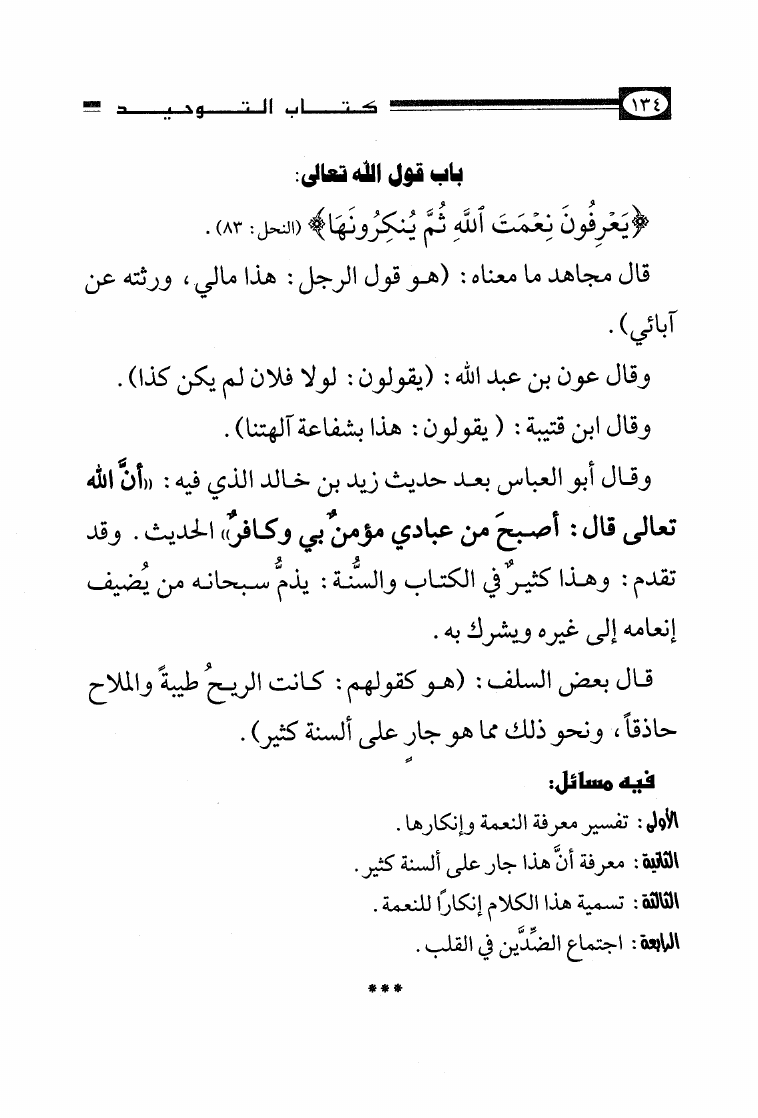 ١٣٤ كتاب التوحيد
باب قول الله تعالى:
﴿يَعْرِفُونَ نِعْمَتَ ٱللَّهِ ثُمَّ يُنكِرُونَهَا﴾ (النحل: ٨٣).
قال مجاهد ما معناه: (هو قول الرجل: هذا مالي، ورثته عن
آبائي).
وقال عون بن عبد الله: (يقولون: لولا فلان لم يكن كذا).
وقال ابن قتيبة: ( يقولون: هذا بشفاعة آلهتنا).
وقال أبو العباس بعد حديث زيد بن خالد الذي فيه: «أنَّ الله
تعالى قال: أصبحَ من عبادي مؤمنٌ بي وكافرٌ» الحديث. وقد
تقدم: وهذا كثيرٌ في الكتاب والسُّنة: يذمُّ سبحانه من يُضيف
إنعامه إلى غيره ويشرك به.
قال بعض السلف: (هو كقولهم: كانت الريحُ طيبةً والملاح
حاذقاً، ونحو ذلك مما هو جارٍ على ألسنة كثير).
فيه مسائل:
الأولى: تفسير معرفة النعمة وإنكارها.
الثانية: معرفة أنَّ هذا جار على ألسنة كثير.
الثالثة: تسمية هذا الكلام إنكارًا للنعمة.
الرابعة: اجتماع الضِّدَّين في القلب.
***